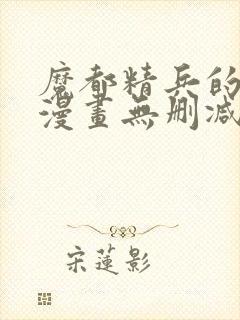 魔都精兵的
漫畫無刪減
宋蓮影